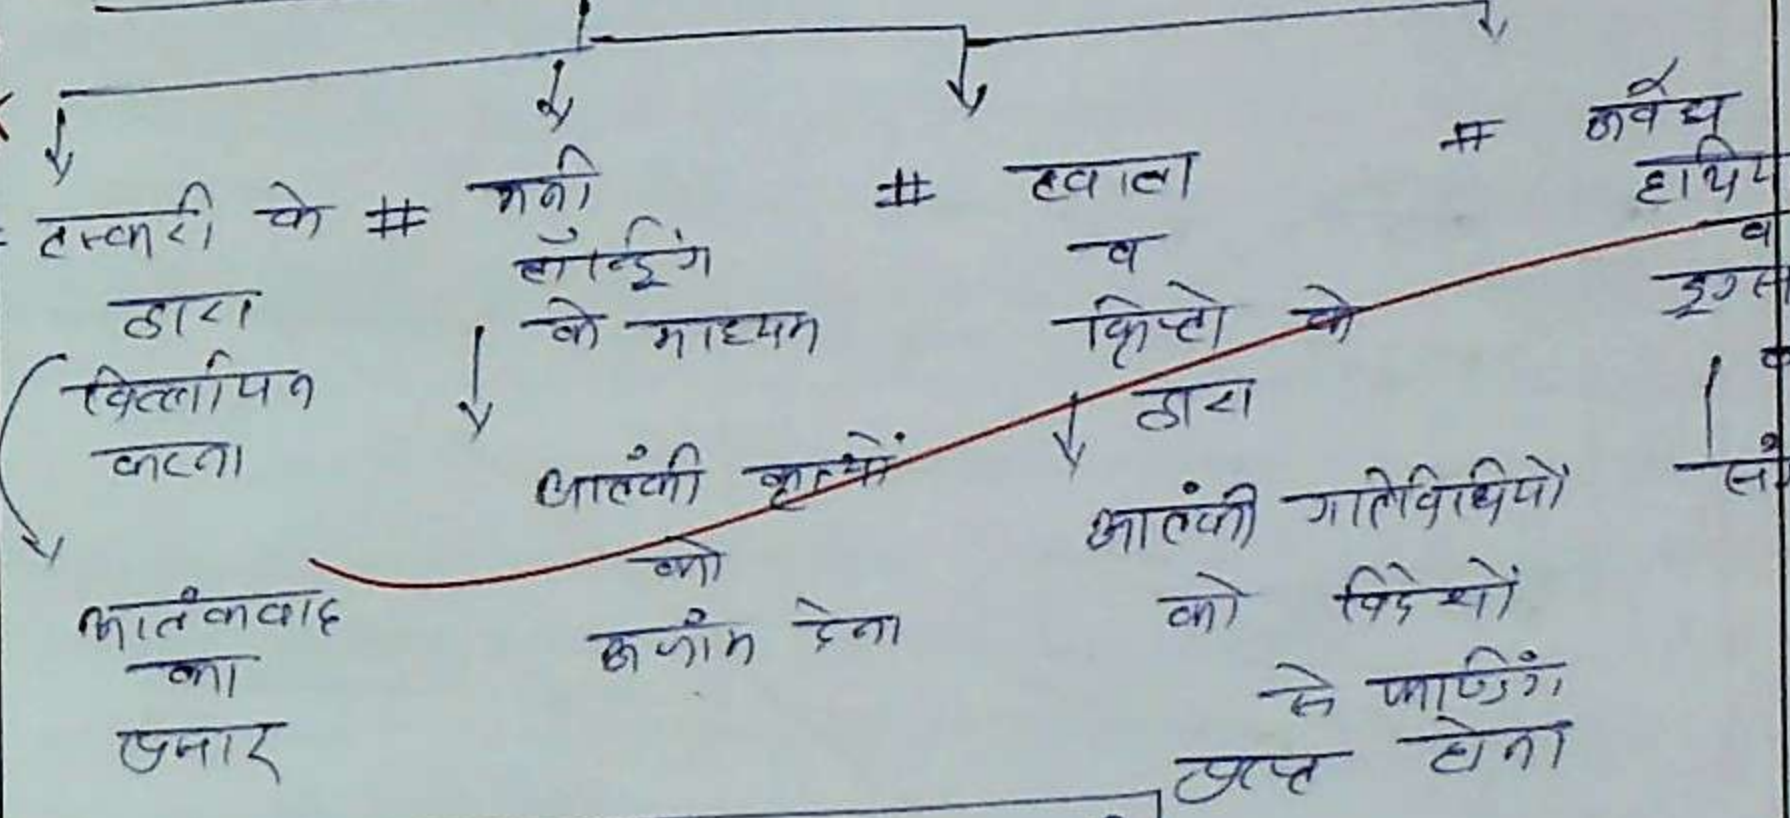 # तस्करी के
द्वारा
वित्तापिन
करना
आतंकवाद
का
प्रसार
# मनी
लॉन्ड्रिंग
के माध्यम
आतंकी कृत्यों
को
अंजाम देना
# हवाला
व
क्रिप्टो के
द्वारा
आतंकी गतिविधियों
को विदेशों
से फण्डिंग
प्राप्त होना
# अवैध
हथिय
व
ड्रग्स